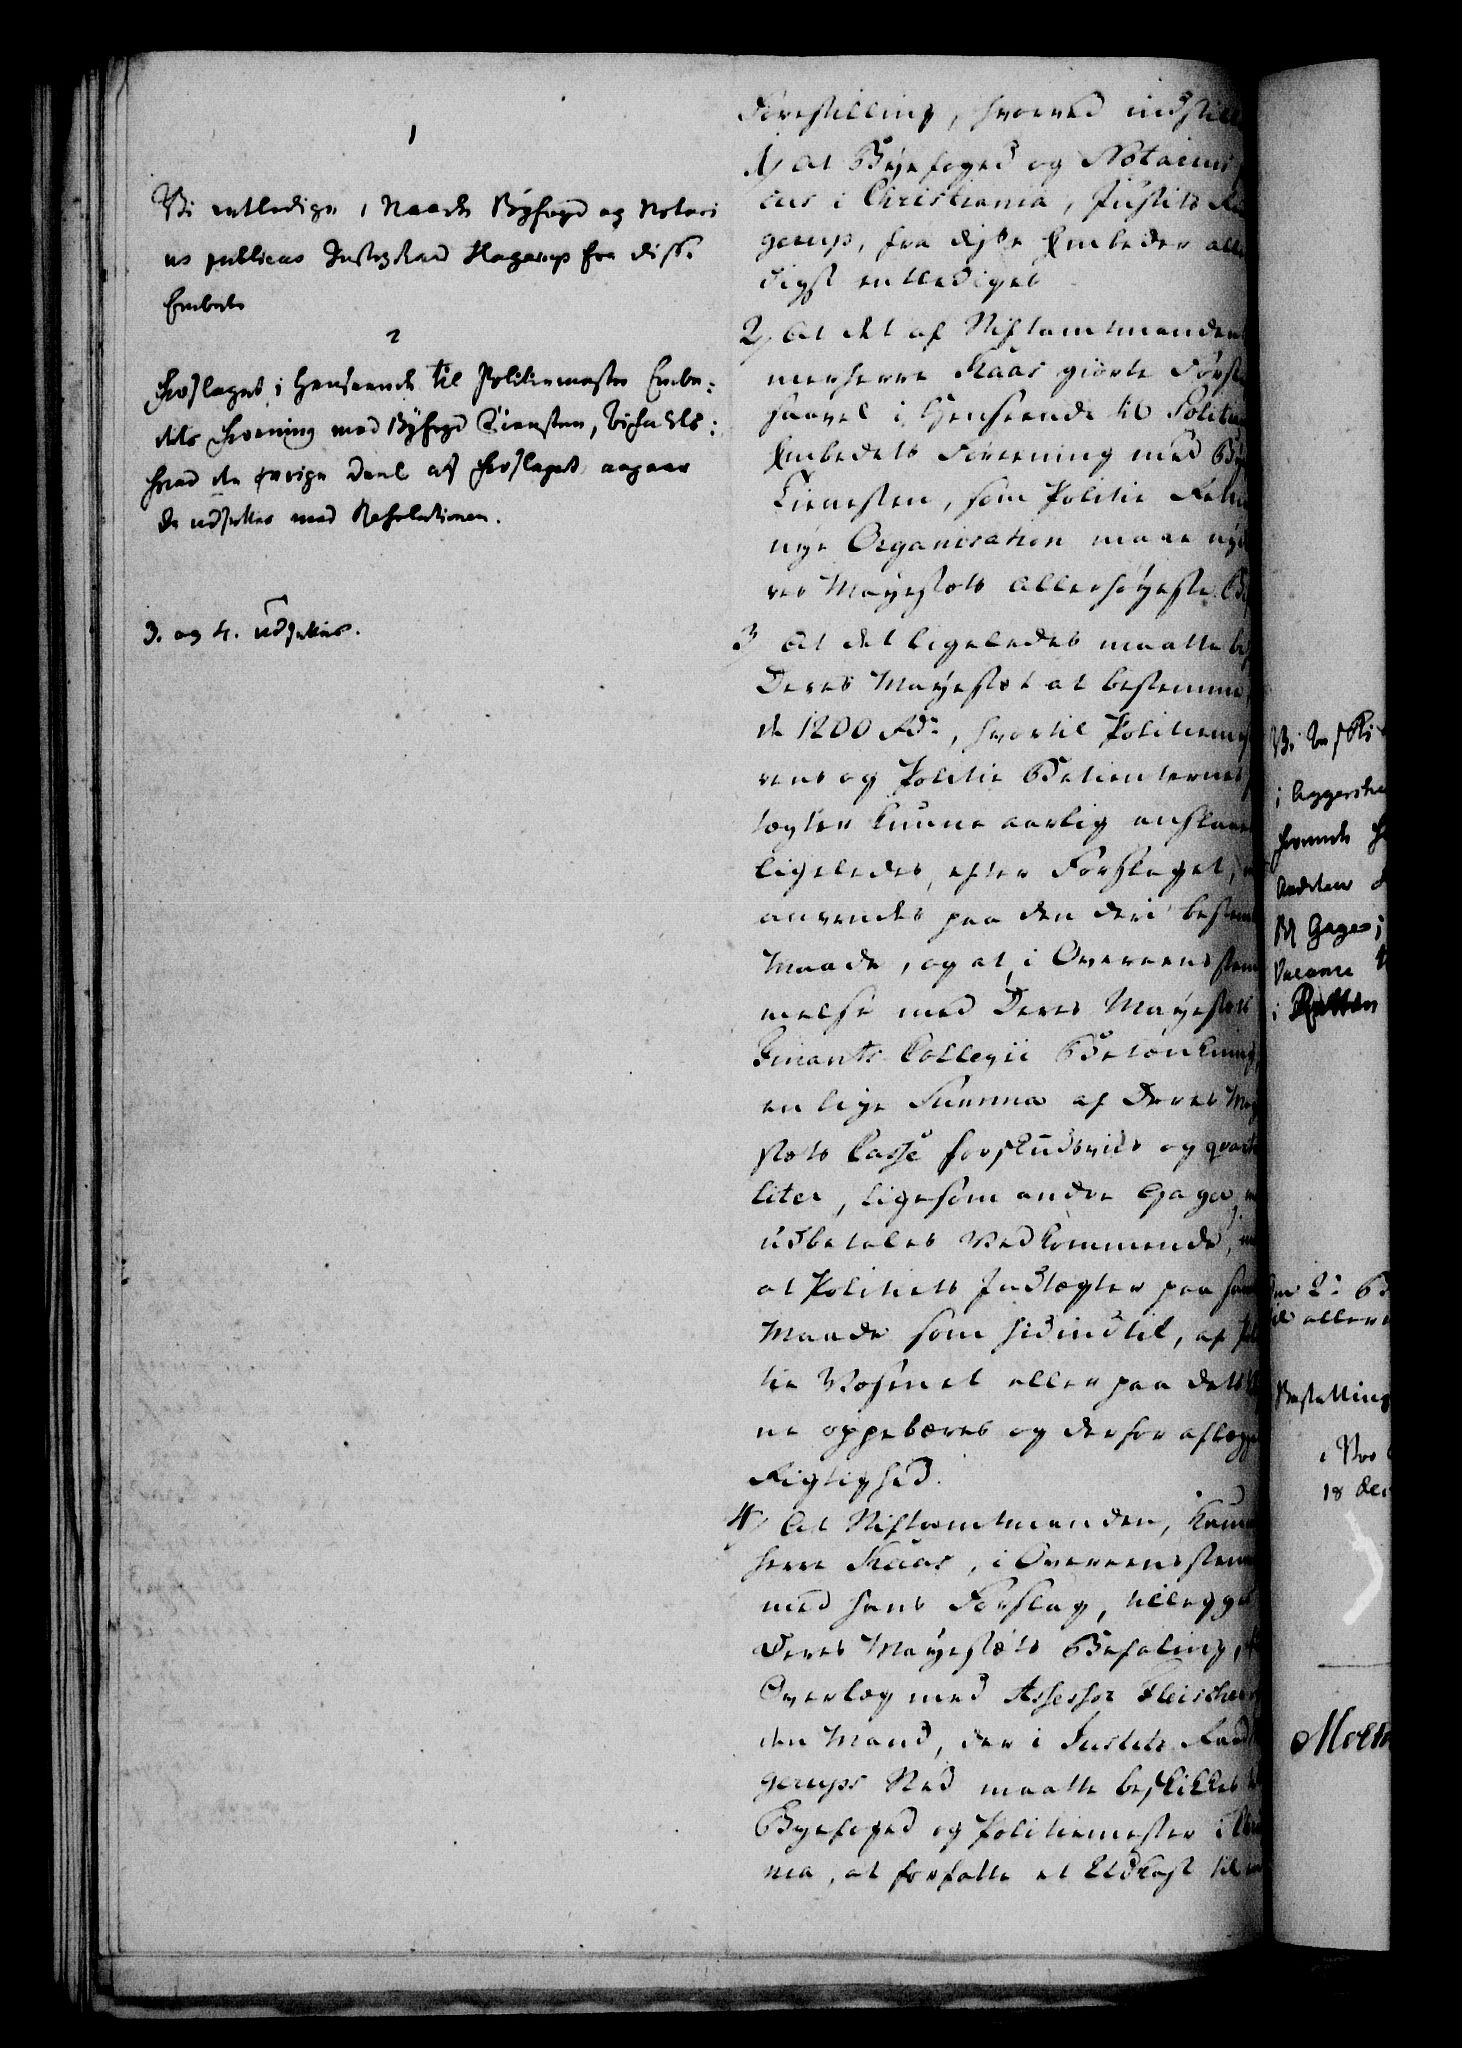 1
Vi entledige i Naade Byfoged og Notari
us publicus Justizraad Hagerup fra disse
Embeder
2
Forslaget i Henseende til Politiemester Embe:
dets Forening med Byfoged Tienesten, bifaldes:
hvad den øvrige Deel af Forslaget angaaer
da udsættes med Resolutionen.
3. og 4. udsættes.
Forestilling, hvorved indstille
1) at Byefoged og Notarius
cus i Christiania, Justits Ra
gerup, fra disse Embeder alle
digst entlediges
2) At det af Stiftamtmanden
merherre Kaas giorte Forsla
saavel i Henseende til Politie
Embedets Forening med Bye
Tienesten, som Politie
nye Organisation maae nyde
res Mayestæts allerhøyeste Bi
3 At det ligeledes maatte be
Deres Mayestæt at bestemme,
de 1200 Rdr, hvortil Politieme
rens og Politie Betienternes
tægter kunne aarlig anslaaes
ligeledes, efter Forslaget,
anvendes paa den deri bestem
Maade, og at, i Overeensstem
melse med Deres Mayestæts
Finants Collegii Betænkning,
en lige Summa af Deres May
stæts Casse forskudsviis og quarta
liter, ligesom andre Gager,
udbetales Vedkommende,
at Politiets Indtægter paa sam
Maade som hidindtil, af Poli
tie Væsenet eller paa dets
ne oppebæres og derfor aflægge
Rigtighed.
4) At Stiftamtmanden, Kam
herre Kaas, i Overeensstem
med hans Forslag, tillægges
Deres Mayestæts Befaling,
Overlæg med Assessor Fleischer
den Mand, der i Justits Raad
gerups Sted maatte beskikkes
Byefoged og Politiemester i Chri
nia, at forfatte et Udkast til
Vi beskik
i Aggershu
Vacance
i Retten
allern
Bestalling
18 Dec
Molt